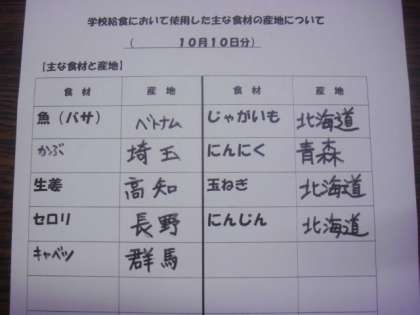 学校給食において使用した主な食材の産地について
（　　10月10日分）
【主な食材と産地】
食材　産地　食材　産地
魚（バサ）　ベトナム　じゃがいも　北海道
かぶ　埼玉　にんにく　青森
生姜　高知　玉ねぎ　北海道
セロリ　長野　にんじん　北海道
キャベツ　群馬